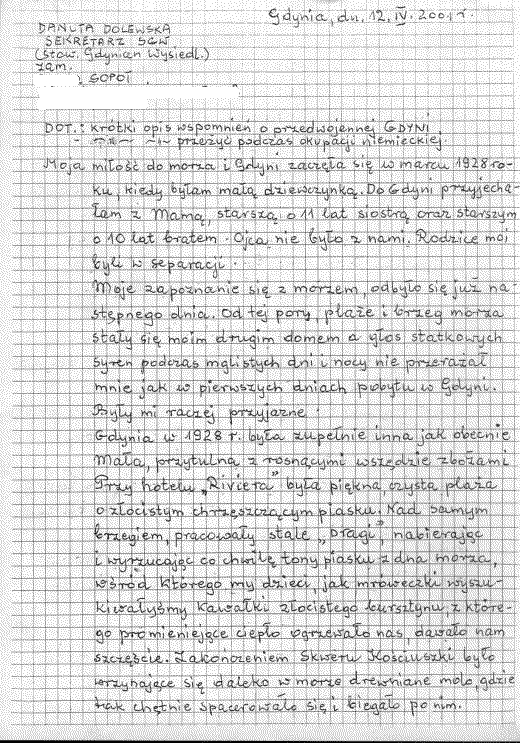 Gdynia, dn. 12. IV. 2001 r.
DANUTA DOLEWSKA
SEKRETARZ SGW
(Stow. Gdynian Wysiedl.)
zam.
SOPOT
DOT.: krótki opis wspomnień o przedwojennej GDYNI
- " - " - " - przeżyć podczas okupacji niemieckiej
Moja miłość do morza i Gdyni zaczęła się w marcu 1928 ro-
ku, kiedy byłam małą dziewczynką. Do Gdyni przyjecha-
łam z Mamą, starszą o 11 lat siostrą oraz starszym
o 10 lat bratem. Ojca nie było z nami. Rodzice moi
byli w separacji.
Moje zapoznanie się z morzem, odbyło się już na-
stępnego dnia. Od tej pory, plaże i brzeg morza
stały się moim drugim domem a głos statkowych
syren podczas mglistych dni i nocy nie przerażał
mnie jak w pierwszych dniach pobytu w Gdyni.
Były mi raczej przyjazne.
Gdynia w 1928 r. była zupełnie inna jak obecnie
Mała, przytulna z rosnącymi wszędzie zbożami
Przy hotelu „Riviera" była piękna, czysta plaża
o złocistym chrzęszczącym piasku. Nad samym
brzegiem, pracowały stale „Dragi", nabierając
i wyrzucając co chwilę tony piasku z dna morza,
wśród którego my dzieci, jak mróweczki wyszu-
kiwałyśmy kawałki złocistego bursztynu, z które-
go promieniejące ciepło ogrzewało nas, dawało nam
szczęście. Zakończeniem Skweru Kościuszki było
wrzynające się daleko w morze drewniane molo, gdzie
tak chętnie spacerowało się i biegało po nim.